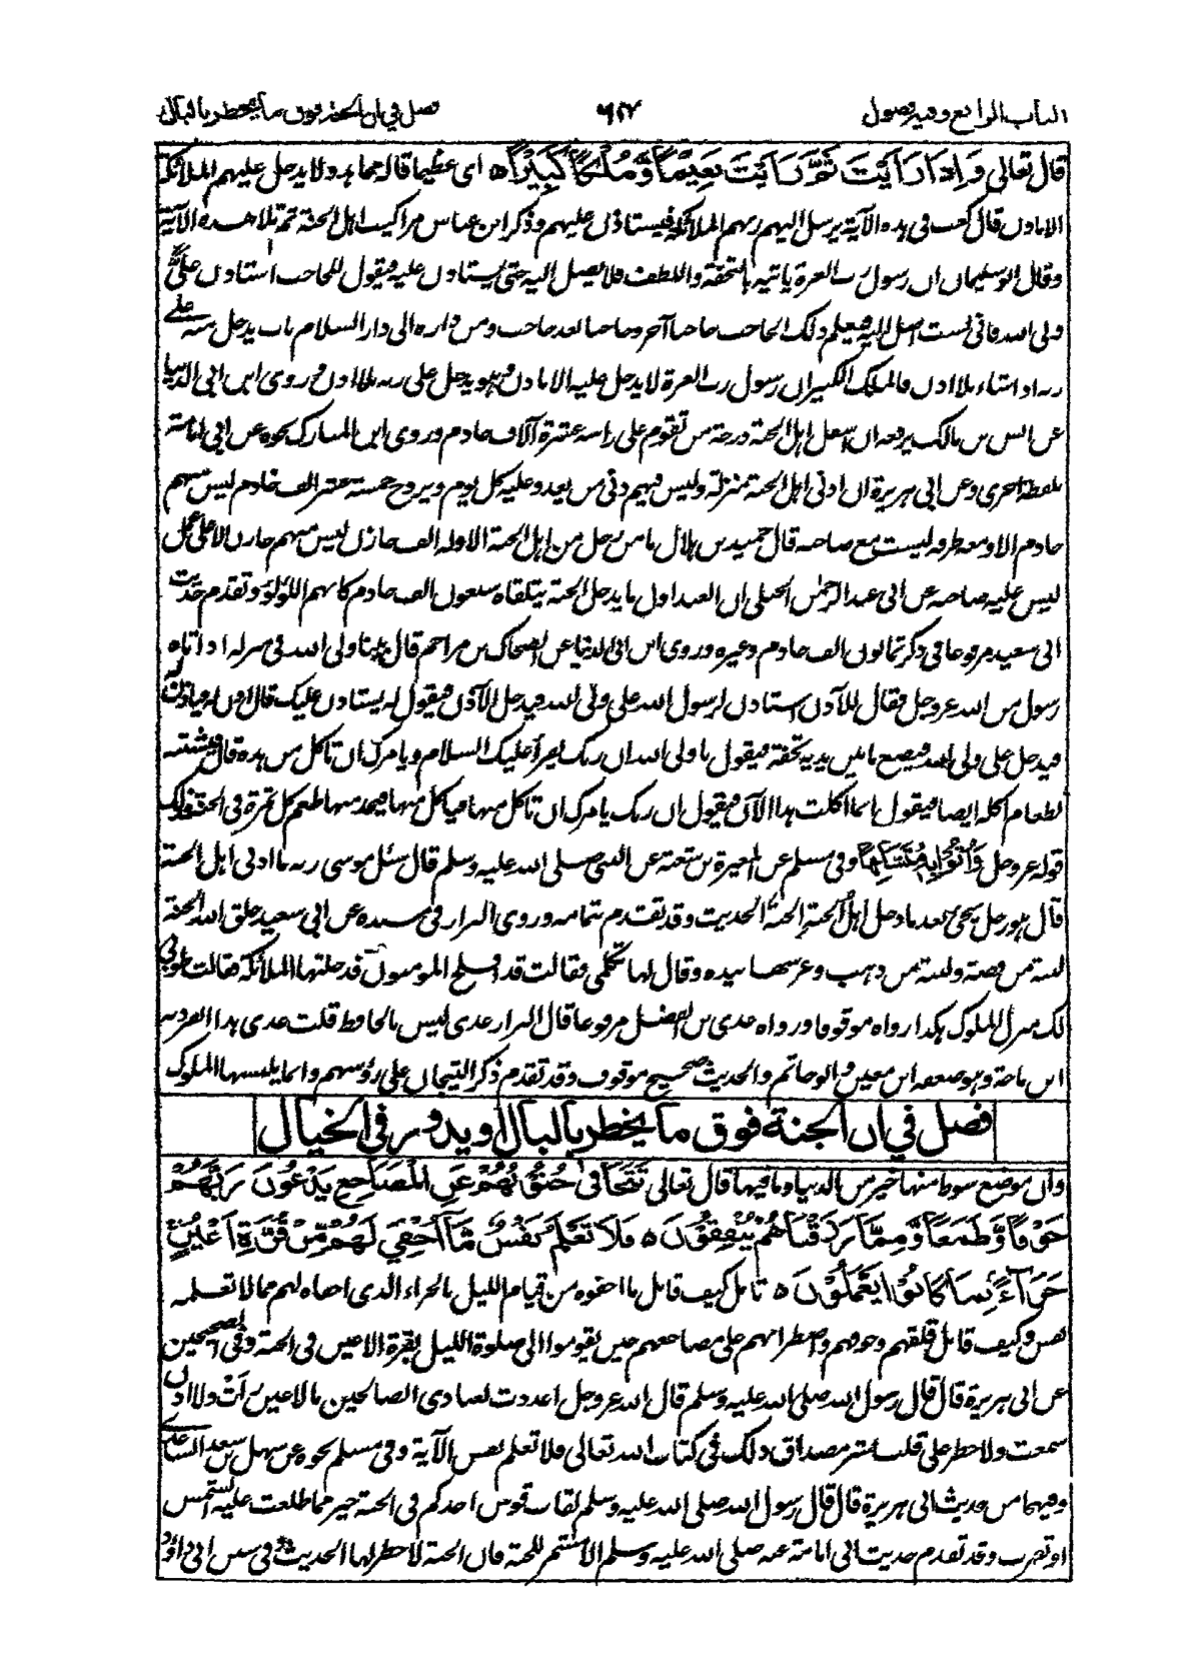 الباب الرابع وفيه فصول ٦٢٧ فصل في ان الجنة فوق ما يخطر بالبال
قال تعالى وَاِذَا رَاَيْتَ ثَمَّ رَاَيْتَ نَعِيْمًا وَّمُلْكًا كَبِيْرًا ای عظیما قاله مجاهد ولا یدخل علیهم الملائکة
الا باذن قال کعب فی هذه الآیة یرسل الیهم ربهم الملائکة فیستاذن علیهم وذکر ابن عباس مراکب اهل الجنة ثم تلا هذه الآیة
وقال ابو سلیمان ان رسول رب العزة یاتیه بالتحفة واللطف فلا یصل الیه حتی یستاذن علیه فیقول للحاجب استاذن علی
ولی الله فانی لست اصل الیه فیعلم ذلک الحاجب حاجبا آخر وحاجبا بعد حاجب ومن داره الی دار السلام باب یدخل منه علی
ربه اذا شاء بلا اذن فالملک الکبیر ان رسول رب العزة لا یدخل علیه الا باذن وهو یدخل علی ربه بلا اذن وروی ابن ابی الدنیا
عن انس بن مالک یرفعه ان اسفل اهل الجنة درجة من یقوم علی راسه عشرة آلاف خادم وروی ابن المبارک نحوه عن ابی امامة
بلفظة اخری وعن ابی هریرة ان ادنی اهل الجنة منزلة ولیس فیهم دنی من یغدو علیه کل یوم ویروح خمسة عشر الف خادم لیس منهم
خادم الا ومعه طرفة لیست مع صاحبه قال حمید بن هلال ما من رجل من اهل الجنة الا وله الف خازن لیس منهم خازن الا علی عمل
لیس علیه صاحبه عن ابی عبد الرحمن الحبلی ان العبد اول ما یدخل الجنة یتلقاه سبعون الف خادم کانهم اللؤلؤ وتقدم حدیث
ابی سعید مرفوعا فی ذکر ثمانون الف خادم وغیره وروی ابن ابی الدنیا عن الضحاک بن مزاحم قال بینا ولی الله فی منزله اذ اتاه
رسول من الله عز وجل فقال للآذن استاذن لرسول الله علی ولی الله فیدخل الآذن فیقول له یستاذن علیک قال
فیدخل علی ولی الله فیضع ما بین یدیه تحفة فیقول یا ولی الله ان ربک یقرأ علیک السلام ویامرک ان تاکل من هذه قال فیشتبه
لطعام اکله ایضا فیقول انما اکلت هذا الآن فیقول ان ربک یامرک ان تاکل منها فیاکل منها فیجد منها طعم کل ثمرة فی الجنة فذلک
قوله عز وجل وَاُتُوْا بِهٖ مُتَشَابِهًا وفی مسلم عن المغیرة بن شعبة عن النبی صلی الله علیه وسلم قال سئل موسی ربه ما ادنی اهل الجنة
قال هو رجل یجئ بعد ما دخل اهل الجنة الجنة الحدیث وقد تقدم بتمامه وروی البزار فی مسنده عن ابی سعید خلق الله الجنة
لبنة من فضة ولبنة من ذهب وغرسها بیده وقال لها تکلمی فقالت قد افلح المومنون فدخلتها الملائکة فقالت طوبی
لک منزل الملوک هکذا رواه موقوفا ورواه عدی بن الفضل مرفوعا قال البزار عدی لیس بالحافظ قلت عدی هذا انفرد به
ابن ماجة وهو ضعفه ابن معین وابو حاتم والحدیث صحیح موقوف وقد تقدم ذکر التیجان علی رؤسهم وانما یلبسها الملوک
فصل في ان الجنة فوق ما يخطر بالبال او يدور في الخيال
وان موضع سوط منها خیر من الدنیا وما فیها قال تعالی تَتَجَافٰى جُنُوْبُهُمْ عَنِ الْمَضَاجِعِ يَدْعُوْنَ رَبَّهُمْ
خَوْفًا وَّطَمَعًا وَّمِمَّا رَزَقْنَاهُمْ يُنْفِقُوْنَ فَلَا تَعْلَمُ نَفْسٌ مَّآ اُخْفِيَ لَهُمْ مِّنْ قُرَّةِ اَعْيُنٍ
جَزَآءً بِمَا كَانُوْا يَعْمَلُوْنَ تامل کیف قابل ما اخفوه من قیام اللیل بالجزاء الذی اخفاه لهم مما لا تعلمه
نفس وکیف قابل قلقهم وخوفهم واضطرابهم علی مضاجعهم حین یقوموا الی صلوة اللیل بقرة الاعین فی الجنة وفی الصحیحین
عن ابی هریرة قال قال رسول الله صلی الله علیه وسلم قال الله عز وجل اعددت لعبادی الصالحین ما لا عین رأت ولا اذن
سمعت ولا خطر علی قلب بشر مصداق ذلک فی کتاب الله تعالی فلا تعلم نفس الآیة وفی مسلم نحوه عن سهل بن سعد الساعدی
وفیهما من حدیث ابی هریرة قال قال رسول الله صلی الله علیه وسلم لقاب قوس احدکم فی الجنة خیر مما طلعت علیه الشمس
او تغرب وقد تقدم حدیث ابی امامة عنه صلی الله علیه وسلم الا مشمر للجنة فان الجنة لا خطر لها الحدیث وفی سنن ابی داؤد